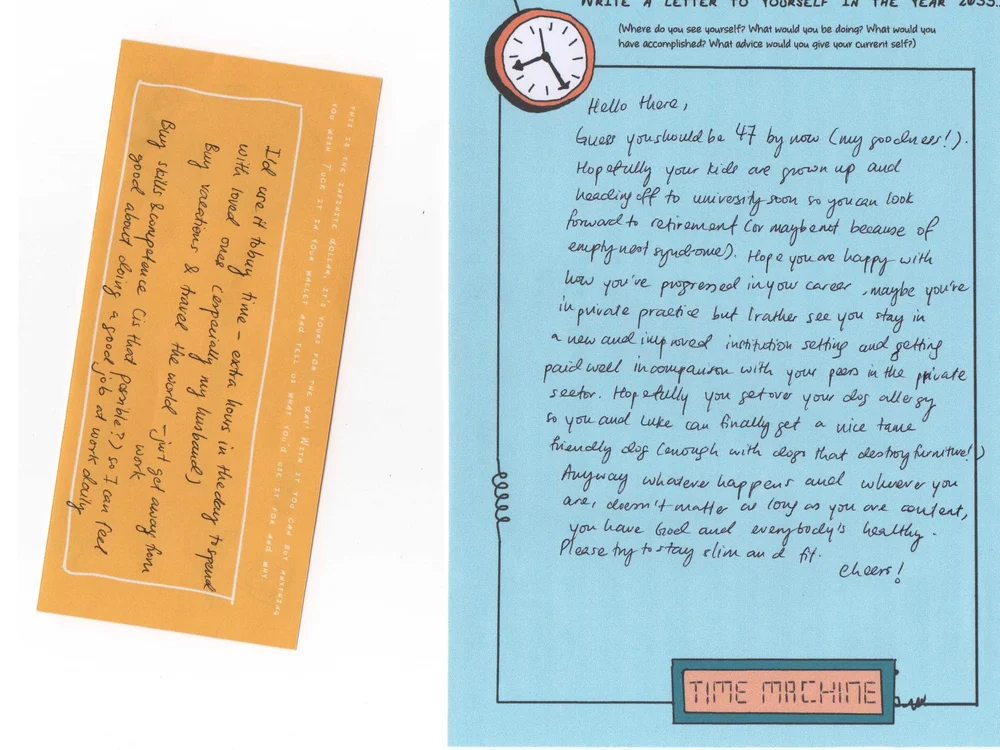 THIS IS THE INFINITE DOLLAR, IT'S YOURS FOR THE DAY. WITH IT YOU CAN BUY ANYTHING
YOU WISH. TUCK IT IN YOUR WALLET AND TELL US WHAT YOU'D USE IT FOR AND WHY.
I'ld use it to buy time - extra hours in the day to spend
with loved ones (especially my husband)
Buy vacations & travel the world - just get away from
work
Buy skills & competence (is that possible?) so I can feel
good about doing a good job at work daily
WRITE A LETTER TO YOURSELF IN THE YEAR 2035.
(Where do you see yourself? What would you be doing? What would you
have accomplished? What advice would you give your current self?)
Hello there,
Guess you should be 47 by now (my goodness!).
Hopefully your kids are grown up and
heading off to university soon so you can look
forward to retirement (or maybe not because of
empty nest syndrome). Hope you are happy with
how you've progressed in your career, maybe you're
in private practice but I rather see you stay in
a new and improved institution setting and getting
paid well in comparison with your peers in the private
sector. Hopefully you get over your dog allergy
so you and Luke can finally get a nice tame
friendly dog (enough with dogs that destroy furniture!)
Anyway whatever happens and wherever you
are, doesn't matter as long as you are content,
you have God and everybody's healthy.
Please try to stay slim and fit.
Cheers!
TIME MACHINE